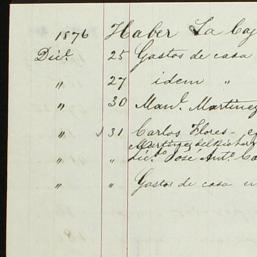 1876 Haber La Caj
Dic.e 25 Gastos de casa
" 27 idem "
" 30 Man.l Martinez
" 31 Carlos Flores
" " Lic.do José Ant.o
" " Gastos de casa en